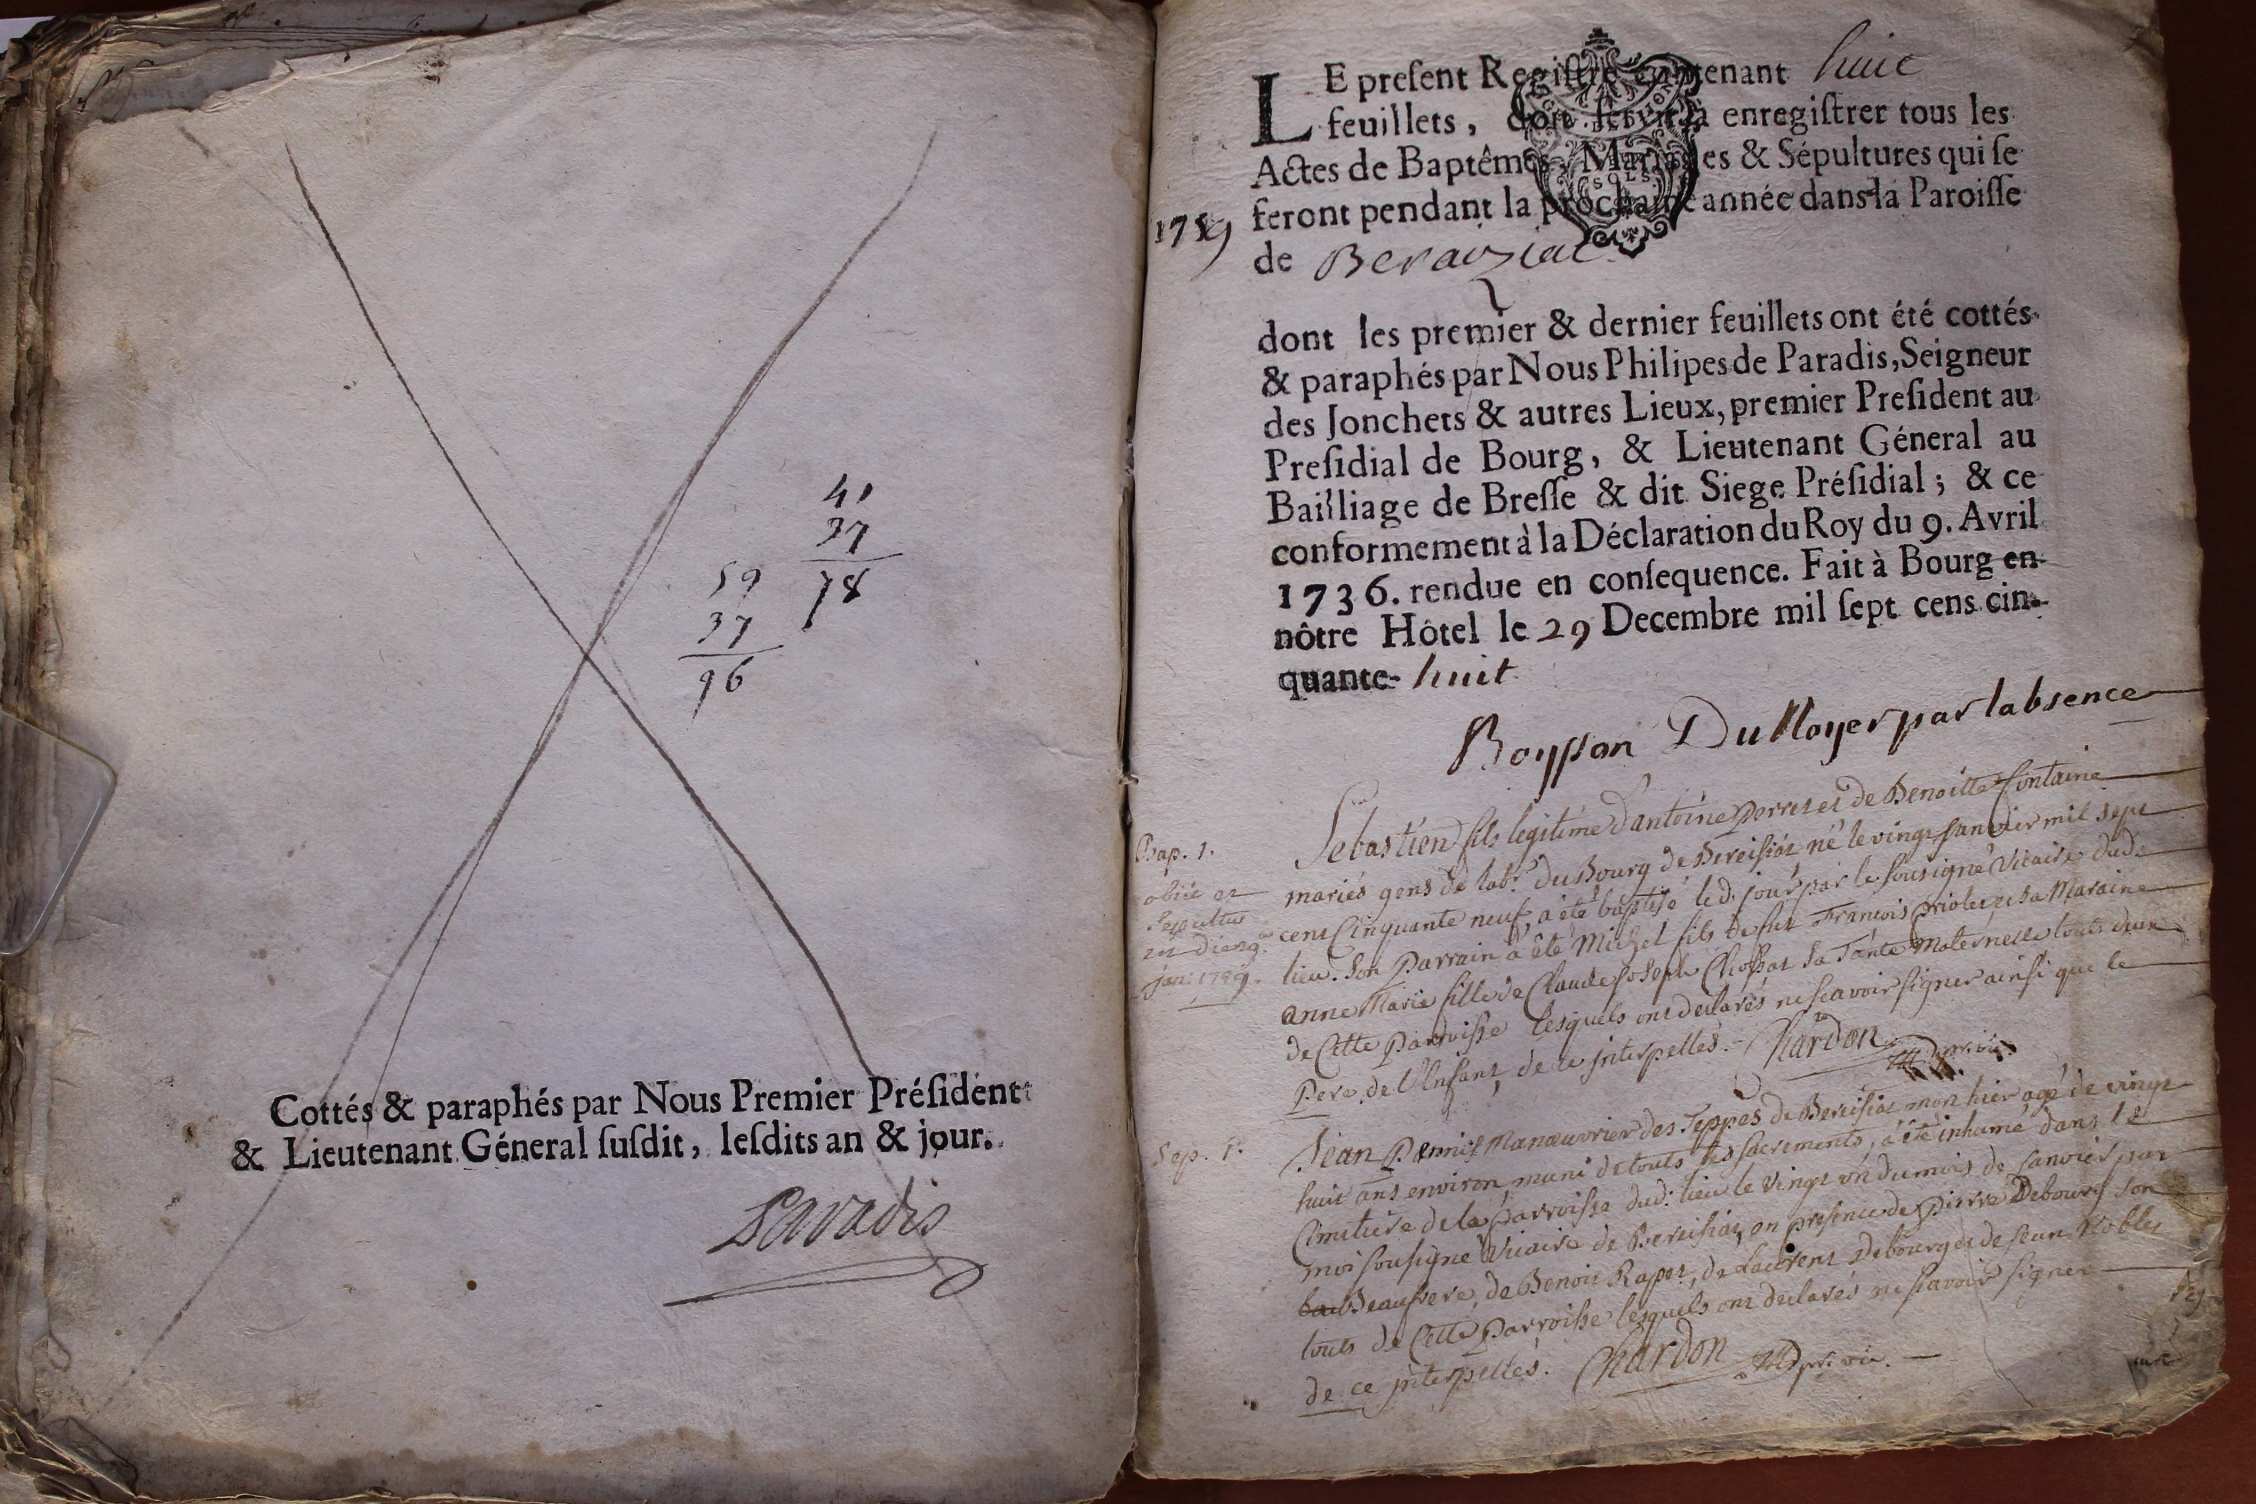 41
37
78
59
37
96
Cottés & paraphés par Nous Premier Préſident
& Lieutenant Géneral ſuſdit, leſdits an & jour.
Paradis
LE preſent Regiſtre contenant huit
feuillets, doit ſervir à enregiſtrer tous les
Actes de Baptêmes, Mariages & Sépultures qui ſe
feront pendant la prochaine année dans la Paroiſſe
1759
de Beraiziat
dont les premier & dernier feuillets ont été cottés
& paraphés par Nous Philipes de Paradis, Seigneur
des Jonchets & autres Lieux, premier Preſident au
Preſidial de Bourg, & Lieutenant Géneral au
Bailliage de Breſſe & dit Siege Préſidial ; & ce
conformement à la Déclaration du Roy du 9. Avril
1736. rendue en conſequence. Fait à Bourg en
nôtre Hôtel le 29 Decembre mil ſept cens cin-
quante- huit
Boyſſon Du Noyer par labsence
Bap. 1.
obiit et
Sepultus
jan. 1759.
Sebastien fils legitime d'antoine Perret et de Benoitte Fontaine
mariés gens de labr. du Bourg de Bereisiat né le vingt Janvier mil sept
cent Cinquante neuf, a été baptisé led. jour par le sousigné Vicaire dud.
lieu. Son Parrain a été Michel fils de feu François Priolet et sa Maraine
anne Marie fille de Claude Joseph Choſsat sa Tante Maternelle touts deux
de Cette Parroisse lesquels ont declarés ne scavoir signer ainsi que le
Pere de l'Enfant, de ce interpellés. Chardon
Sep. 1.
Jean Pannis Manœuvrier des Teppes de Bereisiat mon hier agé de vingt
huit ans environ muni de touts les sacrements, a été inhumé dans le
Cimetiere de la parroisse dud. lieu le vingt un du mois de Janvier par
moi sousigné Vicaire de Bereisiat, en presence de Pierre Debourg son
Beaufrere, de Benoit Rapet, de Laurent Debourg et de Jean Nobles
touts de Cette Parroisse lesquels ont declarés ne scavoir signer
de ce interpellés. Chardon ptr. vic.